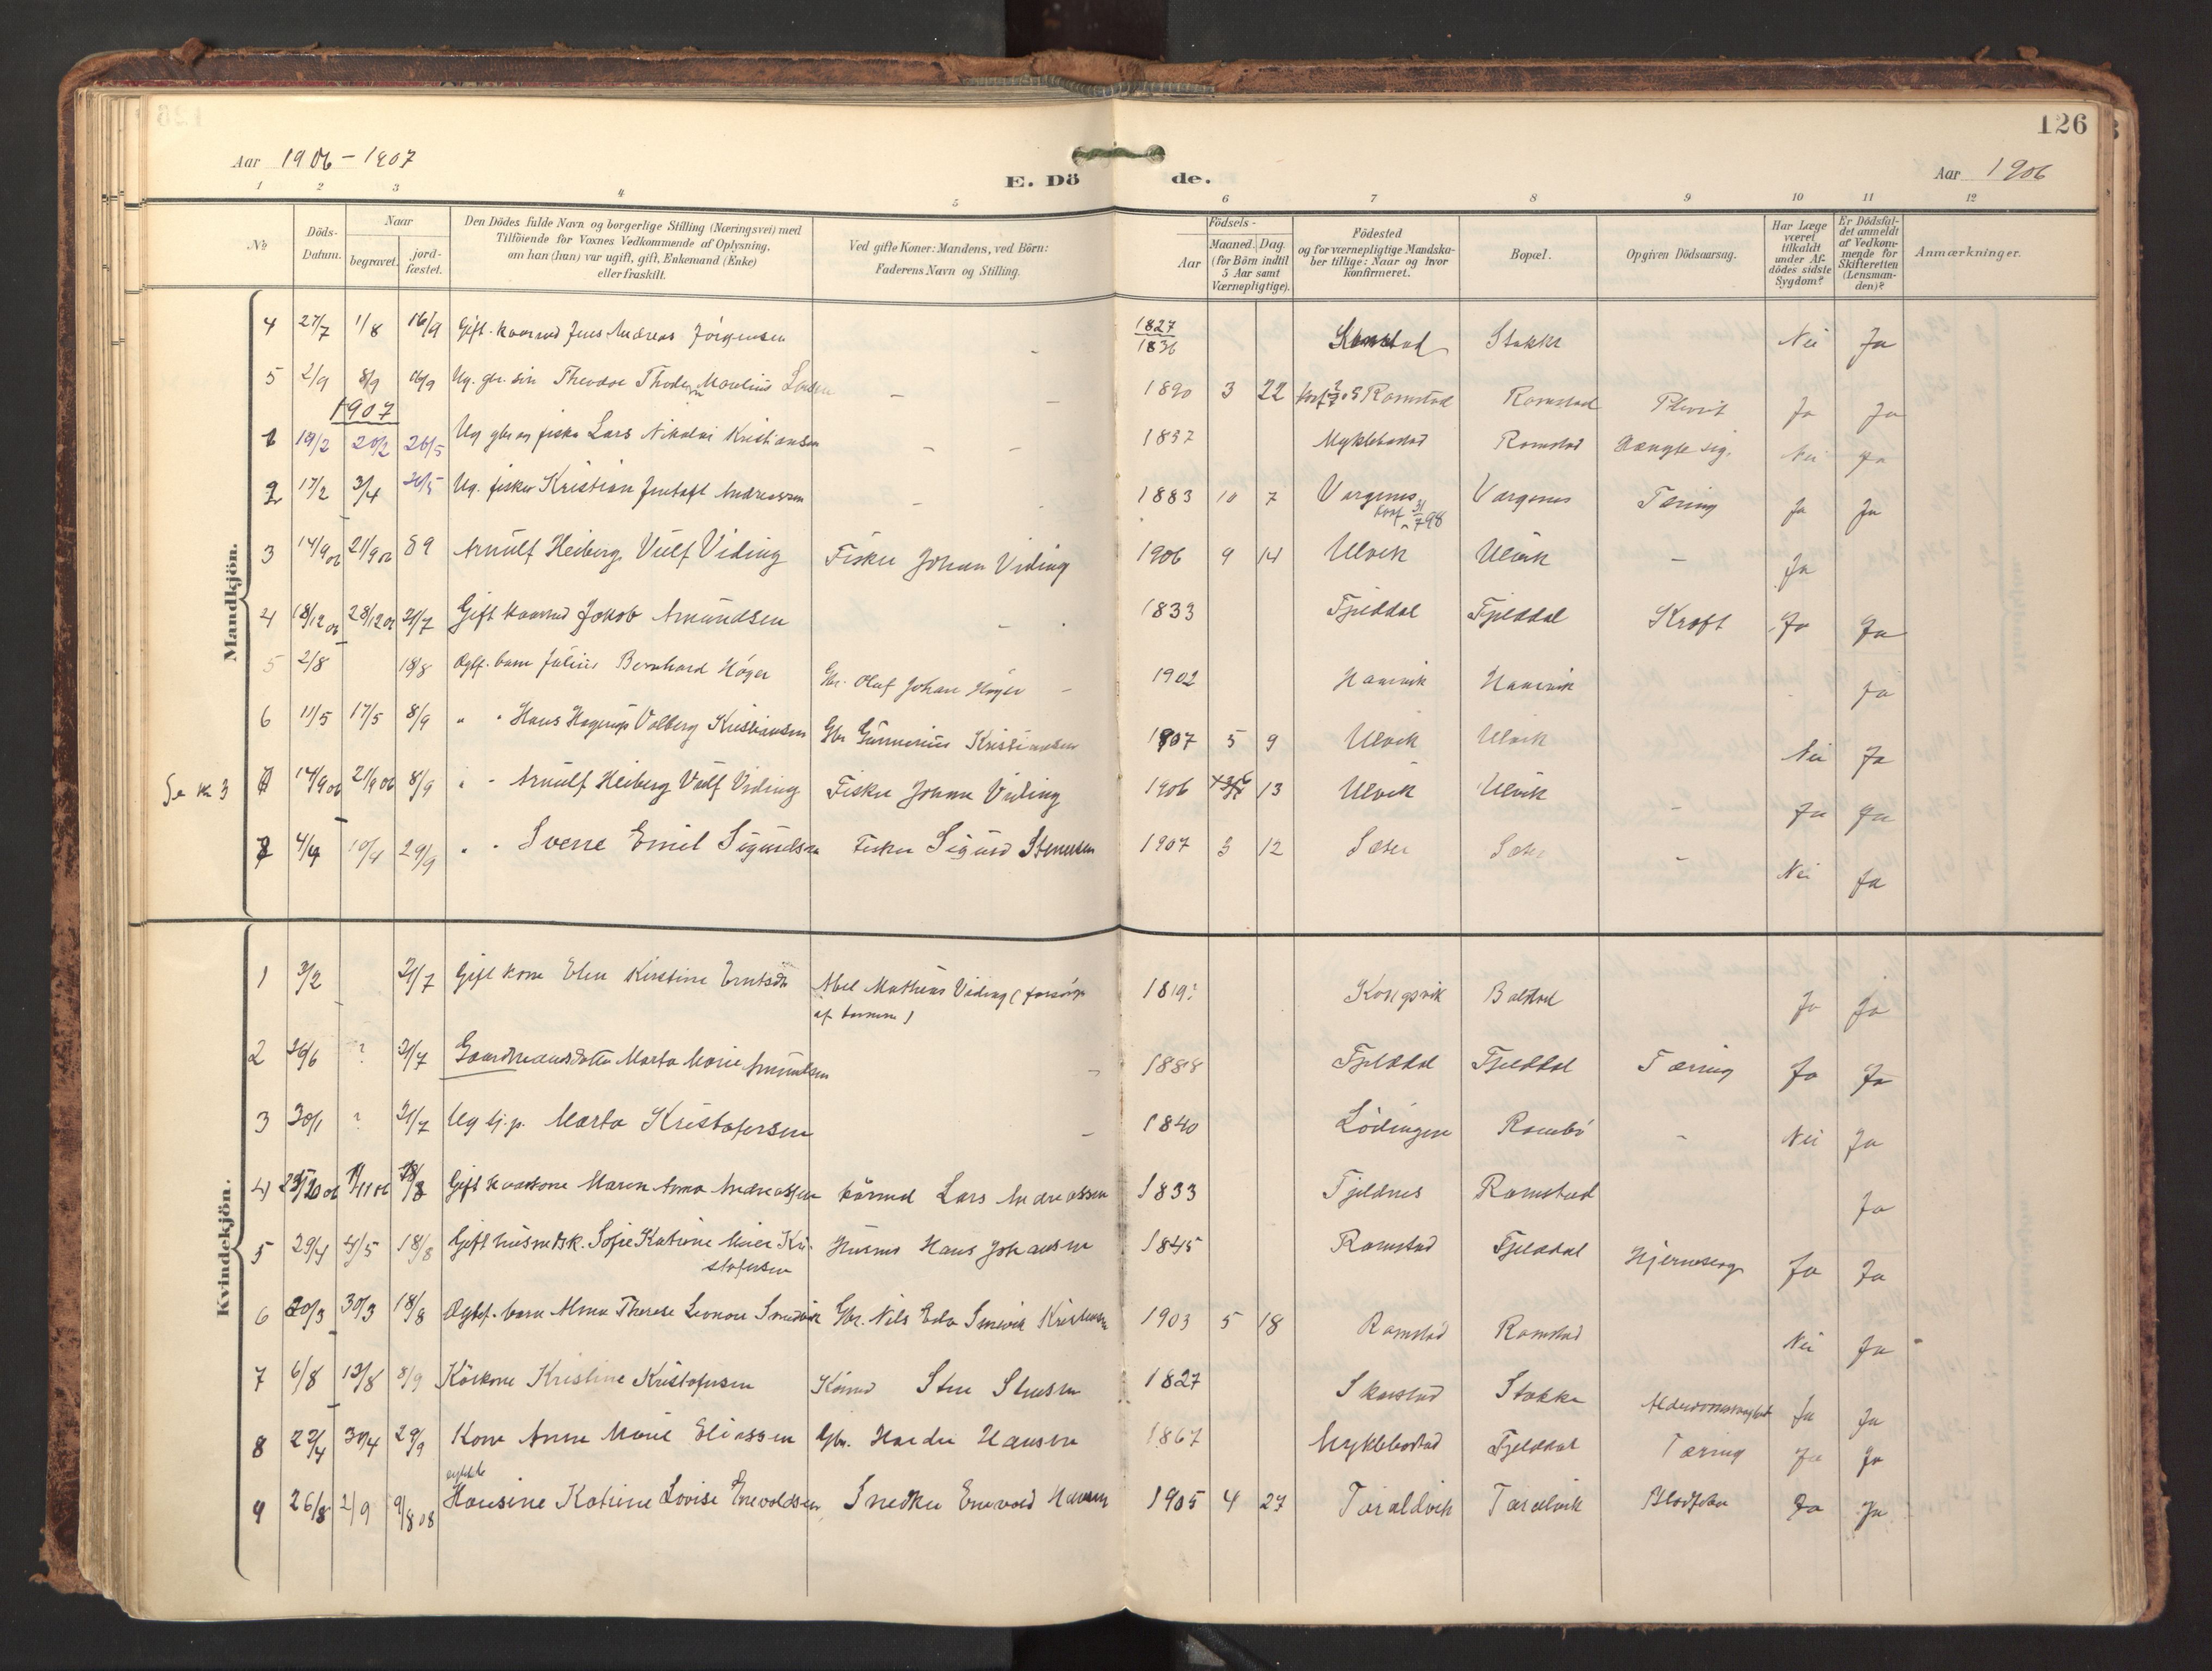 126
Aar 1906 - 1907
E. Dö de.
Aar 1906
1 2 3 4 5 6 7 8 9 10 11 12
No
Döds-Datum.
Naar
begravet.
jord-fæstet.
Den Dödes fulde Navn og borgerlige Stilling (Næringsvei) med
Tilföiende for Voxnes Vedkommende af Oplysning,
om han (hun) var ugift, gift, Enkemand (Enke)
eller fraskilt.
Ved gifte Koner: Mandens, ved Börn:
Faderens Navn og Stilling.
Födsels-
Aar
Maaned. Dag.
(for Börn indtil
5 Aar samt
Værnepligtige).
Födested
og for værnepligtige Mandska-
ber tillige: Naar og hvor
konfirmeret.
Bopæl.
Opgiven Dödsaarsag.
Har Læge
været
tilkaldt
under Af-
dödes sidste
Sygdom?
Er Dödsfal-
det anmeldt
af Vedkom-
mende for
Skifteretten
(Lensman-
den)?
Anmærkninger.
Mandkjön.
4 27/7 1/8 16/9 Gift. Jens Andreas Jörgensen - 1827 1836 Stokke Nei Ja
5 2/9 8/9 16/9 Ug. gbr. sön Theodor Marelius - - 1890 3 22 Ramstad Ramstad Plevrit Ja Ja
1907
1 19/2 20/2 26/5 Ug gbr og fisker Lars Nikolai Kristiansen - - 1837 Myklebostad Ramstad Hængte sig. Nei Ja
2 17/2 3/4 26/5 Ug. fisker Kristian Andreassen - 1883 10 7 Vargenes Konf 31/7 98 Vargenes Tæring Ja Ja
3 14/9 06 21/9 06 8 9 Arnulf Heiberg Vulf Viding Fisker Johan Viding 1906 9 14 Ulvik Ulvik - Ja
4 18/12 06 28/12 06 21/7 Gift kaarmd Jakob Amundsen - 1833 Fjelddal Fjelddal Kræft Ja Ja
5 2/8 18/8 Ægtf. barn Julius Bernhard Höyer Gbr. Oluf Johan Höyer - 1902 Hamnvik Hamnvik Ja
6 11/5 17/5 8/9 " " Hans Hagerup Valberg Kristiansen Gbr Gunnerius Kristiansen 1907 5 9 Ulvik Ulvik Nei Ja
Se No 3 7 14/9 06 21/9 06 8/9 " " Arnulf Heiberg Vulf Viding Fisker Johan Viding 1906 13 Ulvik Ulvik - Ja Ja
7 4/4 10/4 29/9 " " Sverre Emil Sigurdsen Fisker Sigurd Stensen 1907 3 12 Sæter Sæter - Nei Ja
Kvindekjön.
1 3/2 21/7 Gift kone Elen Kirstine Abel Mathias Viding (forsörges
af barnene) 1819? Kongsvik Balstad Ja Ja
2 26/6 ? 21/7 Gaardmandsdatter Marta Marie Amundsen - 1888 Fjelddal Fjelddal Tæring Ja Ja
3 30/1 ? 21/7 Ug tj. p. Marta Kristofersen - 1840 Lödingen Rambö - Nei Ja
4 18/8 Gift Maren Anna Andreassen kårmd Lars Andreassen 1833 Fjeldnes Ramstad Ja
5 29/4 4/5 18/8 Gift husmdsk. Sofie Katrine Marie Kri-
stofersen Husmd Hans Johansen 1845 Ramstad Fjelddal Ja Ja
6 20/3 30/3 18/8 Ægtef. barn Alma Therese Leonore Smedvik Gbr. Nils Kristensen 1903 5 18 Ramstad Ramstad Nei Ja
7 6/8 13/8 8/9 Kårkone Kristine Kristofersen Kårmd Sten Stensen 1827 Skarstad Stokke Ja Ja
8 22/4 30/4 29/9 Kone Anne Marie Eliassen Gbr. Hansen 1867 Myklebostad Fjelddal Tæring Ja Ja
9 26/8 2/9 9/8 08 Hansine Katrine Lovise Enevoldsen Snedker Enevold Hansen 1905 4 27 Taraldvik Taraldvik Ja Ja